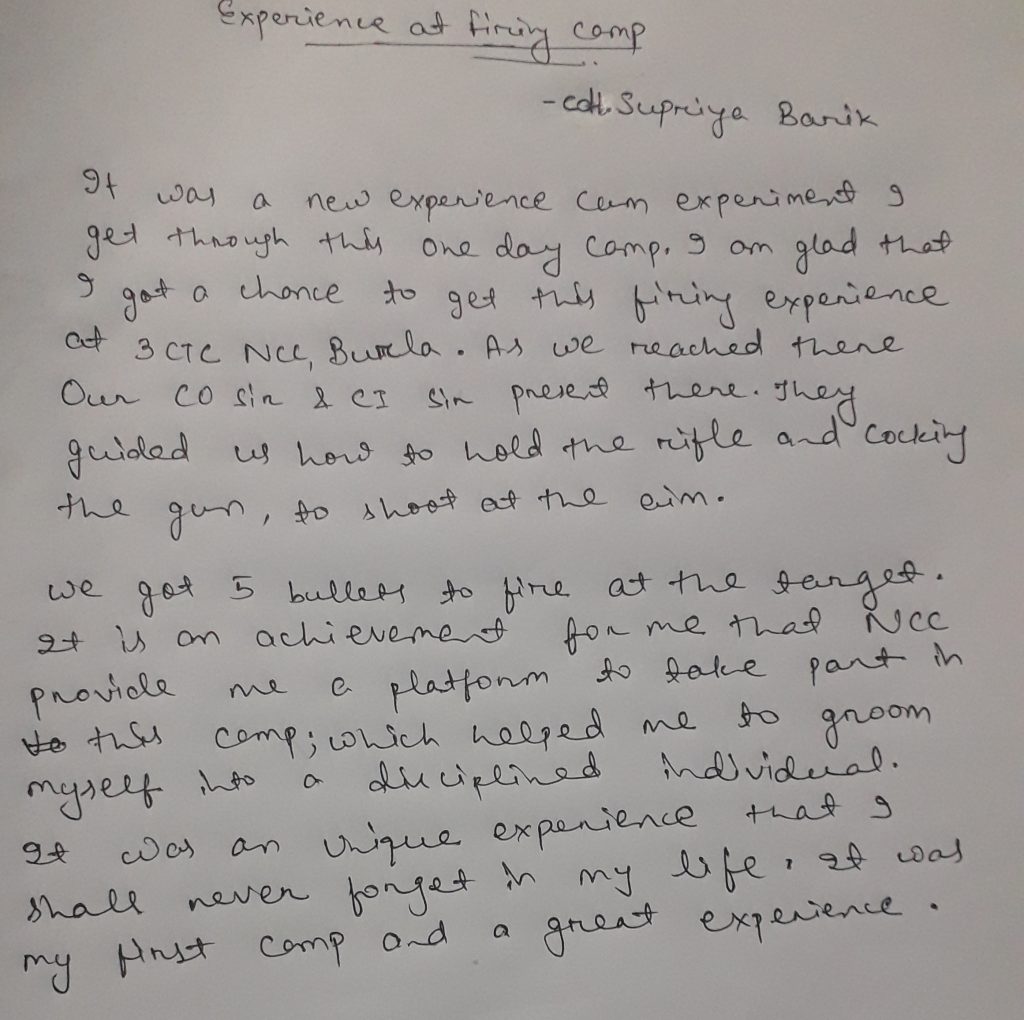 Experience at firing camp
- cdt. Supriya Barik
It was a new experience cum experiment I
get through this one day camp. I am glad that
I got a chance to get this firing experience
at 3 CTC NCC, Burla. As we reached there
Our CO sir & CI sir present there. They
guided us how to hold the rifle and cocking
the gun, to shoot at the aim.
we got 5 bullets to fire at the target.
It is an achievement for me that NCC
provide me a platform to take part in
this camp; which helped me to groom
myself into a disciplined individual.
It was an unique experience that I
shall never forget in my life. It was
my first camp and a great experience.